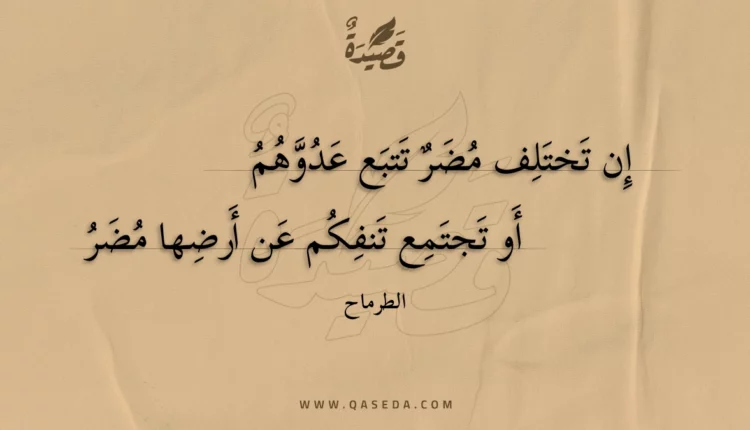 قَصِيدَةٌ
إِن تَختَلِف مُضَرٌ تَتبَع عَدُوَّهُمُ
أَو تَجتَمِع تَنفِكُم عَن أَرضِها مُضَرُ
الطرماح
WWW.QASEDA.COM